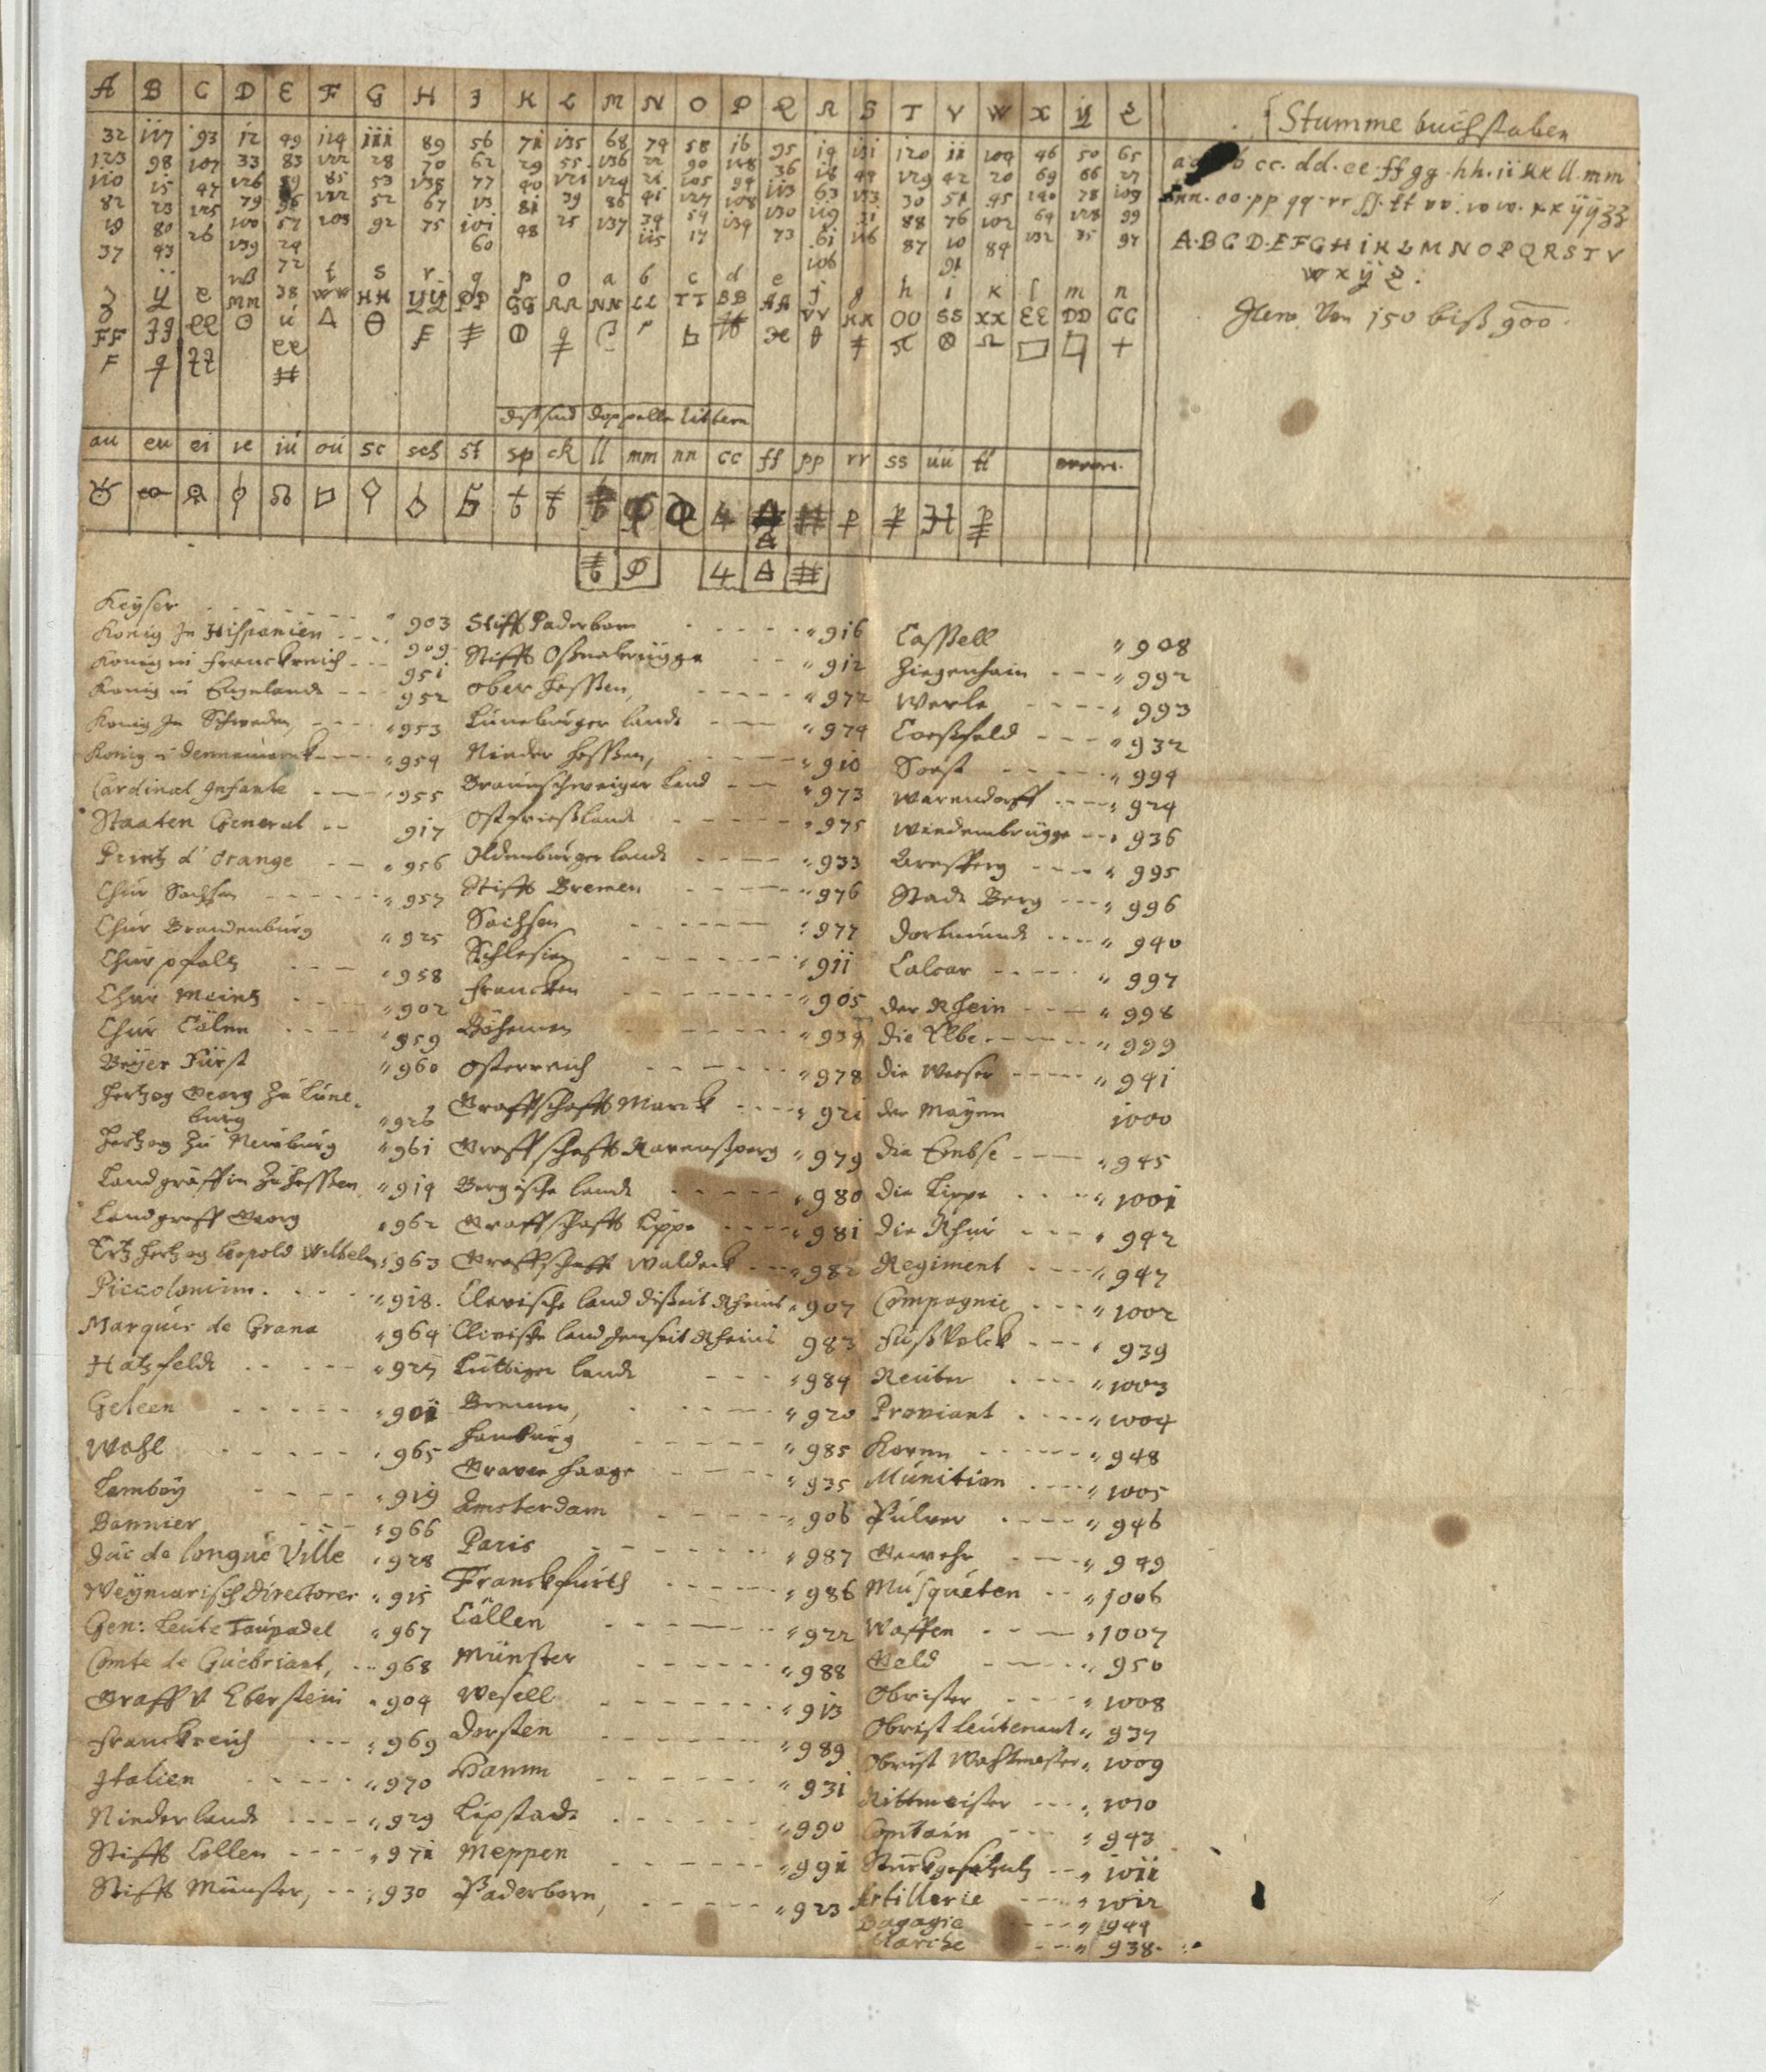 A B C D E F G H I K L M N O P Q R S T V W X ÿ Z
32 117 93 12 49 114 111 89 56 71 135 68 74 58 16 95 14 131 120 11 104 46 50 65
123 98 107 33 83 122 28 70 62 29 55 136 22 90 118 36 18 44 129 42 20 69 66 27
110 15 47 126 85 53 138 77 40 121 124 21 105 94 113 63 133 30 51 45 140 78 109
82 23 125 79 96 52 67 13 81 39 86 41 127 108 130 119 31 88 76 102 64 128 99
19 80 26 100 57 103 92 75 101 48 25 137 34 54 134 73 61 116 87 10 84 132 35 97
37 43 139 24 60 115 17 106 91
72
z y e t s r q p o a b c d e f g h i k l m n
FF MM 38 WW HH YY PP GG RR NN LL TT BB AA VV KK OO SS XX EE DD CC
dißsind doppelte littern
au eu ei ie iú oú sc sch st sp ck ll mm nn cc ff pp rr ss úú tt
Stumme buchstaben
cc. dd. ee. ff gg. hh. ii kk ll. mm
nn. oo. pp qq. rr ss. tt vv. ww. xx ÿÿ zz
A. B C D. E F G H I K L M N O P Q R S T V
W X ÿ Z.
Item Von 150 biß 900.
Keÿser 903
König In Hispanien 909
König in Franckreich 951
König in Engelandt 952
König In Schweden, 953
König in Dennemarck 954
Cardinal Infante 955
Staaten General 917
Printz d'Orange 956
Chúr Sachsen 957
Chúr Brandenbúrg 925
Chúr pfaltz 958
Chúr Meintz 902
Chúr Cölln 959
Beÿer Fúrst 960
Hertzog Georg Zú Lúne-
búrg 926
Hertzog Zú Newbúrg 961
Landgräffin Zú Hessen 914
Landgraff Georg 962
Ertz Hertzog Leopold Wilhelm 963
Piccolomini 918.
Marquis de Grana 964
Hatzfeldt 927
Geleen 901
Wahl 965
Lamboÿ 919
Bannier 966
Dúc de longué Ville 928
Weÿmarisch Directores 915
Gen: Leút Taúpadel 967
Comte de Guebriant, 968
Graff V. Eberstein 904
Franckreich 969
Italien 970
Niederlandt 929
Stifft Cöllen 971
Stifft Múnster, 930
Stifft Paderborn 916
Stifft Oßnabrügge 912
Ober Hessen, 972
Lúnebúrger landt 974
Nieder Hessen, 910
Braúnschweiger Land 973
Ostfrießlandt 975
Oldenbúrger landt 933
Stifft Bremen 976
Sachsen 977
Schlesien 911
Francken 905
Böhemen 934
Osterreich 978
Graffschafft Marck 921
Graffschafft Ravenßperg 979
Bergische landt 980
Graffschafft Lippe 981
Graffschafft Waldeck 982
Clevische land disseit Rheins 907
Clevische land Jenseit Rheins 983
Lúttiger landt 984
Bremen, 920
Hambúrg 985
Graven Haage 935
Amsterdam 906
Paris 987
Franckfúrth 986
Cöllen 922
Münster 988
Wesell 913
Dorsten 989
Hamm 931
Lipstadt 990
Meppen 991
Paderborn, 923
Cassell 908
Ziegenhain 992
Werle 993
Coesfeld 932
Soest 994
Warendorff 924
Wiedembrügge 936
Arnsperg 995
Stadt Berg 996
Dortmúndt 940
Calcar 997
Der Rhein 998
Die Elbe 999
Die Weser 941
Der Maÿen 1000
Die Embse 945
Die Lippe 1001
Die Rhúr 942
Regiment 947
Compagnie 1002
Fúßvolck 939
Reúter 1003
Proviant 1004
Kornn 948
Múnition 1005
Púlver 946
Gewehr 949
Músquéten 1006
Waffen 1007
Geld 950
Obrister 1008
Obrist Leútenant 937
Obrist Wachtmeister 1009
Rittmeister 1010
Capitain 943
Stúckgeschútz 1011
Artillerie 1012
Bagagie 944
Marche 938.